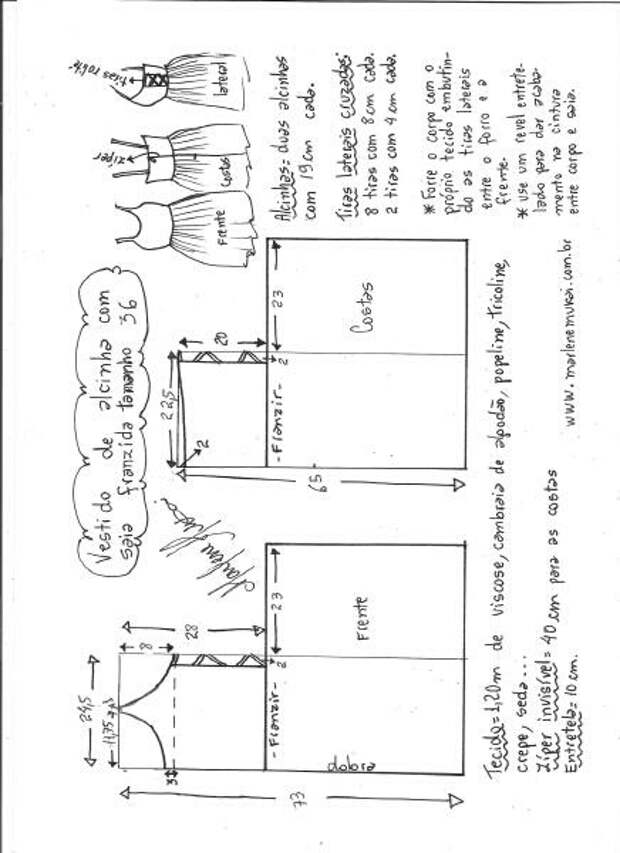 Vestido de alcinha com
saia franzida tamanho 36
Frente
Costas
zíper
lateral
tiras rolotê
Alcinhas= duas alcinhas
com 19cm cada.
Tiras laterais cruzadas:
8 tiras com 8cm cada.
2 tiras com 4cm cada.
* Forre o corpo com o
próprio tecido embutin-
do as tiras laterais
entre o forro e a
frente.
* Use um revel entrete-
lado para dar acaba-
mento na cintura
entre corpo e saia.
24,5
11,75
8
28
3
2
23
-Franzir-
Frente
dobra
73
22,5
2
20
2
23
-Franzir-
Costas
65
Tecido=1,20m de viscose, cambraia de algodão, popeline, tricoline,
crepe, seda...
Zíper invisível= 40cm para as costas
Entretela=10cm.
www.marlenemukai.com.br